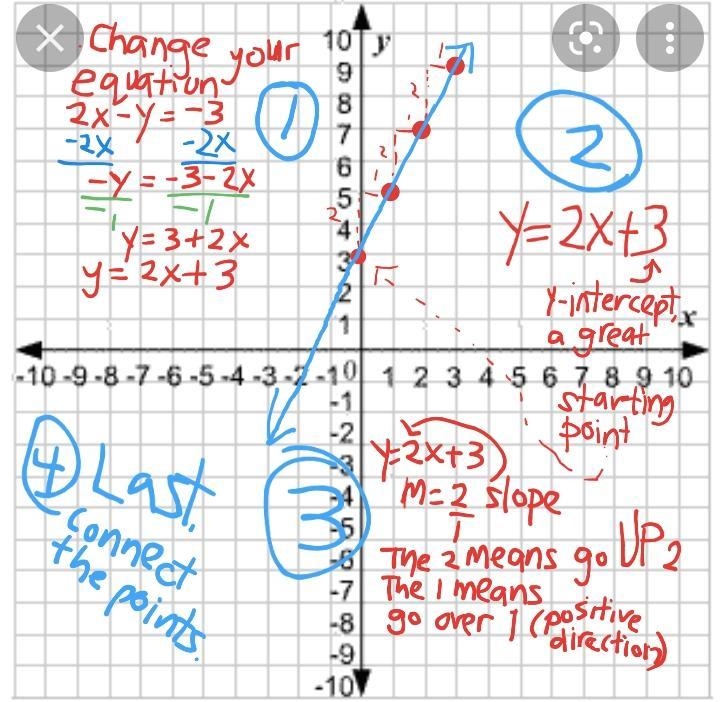 Change your
equation
2x-y=-3
-2x -2x
-y = -3-2x
-1 -1
y=3+2x
y=2x+3
1
2
y=2x+3
y-intercept,
a great
starting
point
3
y=2x+3
M=2/1 slope
The 2 means go UP 2
The 1 means
go over 1 (positive
direction)
4 Last,
connect
the points.
y
10
9
8
7
6
5
4
3
2
1
x
-10 -9 -8 -7 -6 -5 -4 -3 -2 -1 0 1 2 3 4 5 6 7 8 9 10
-1
-2
-3
-4
-5
-6
-7
-8
-9
-10
2
1
2
1
2
1